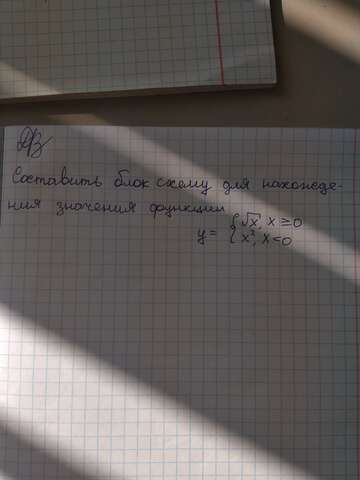 ДЗ
Составить блок схему для нахожде-
ния значения функции
y = { √x, x ≥ 0
x², x < 0